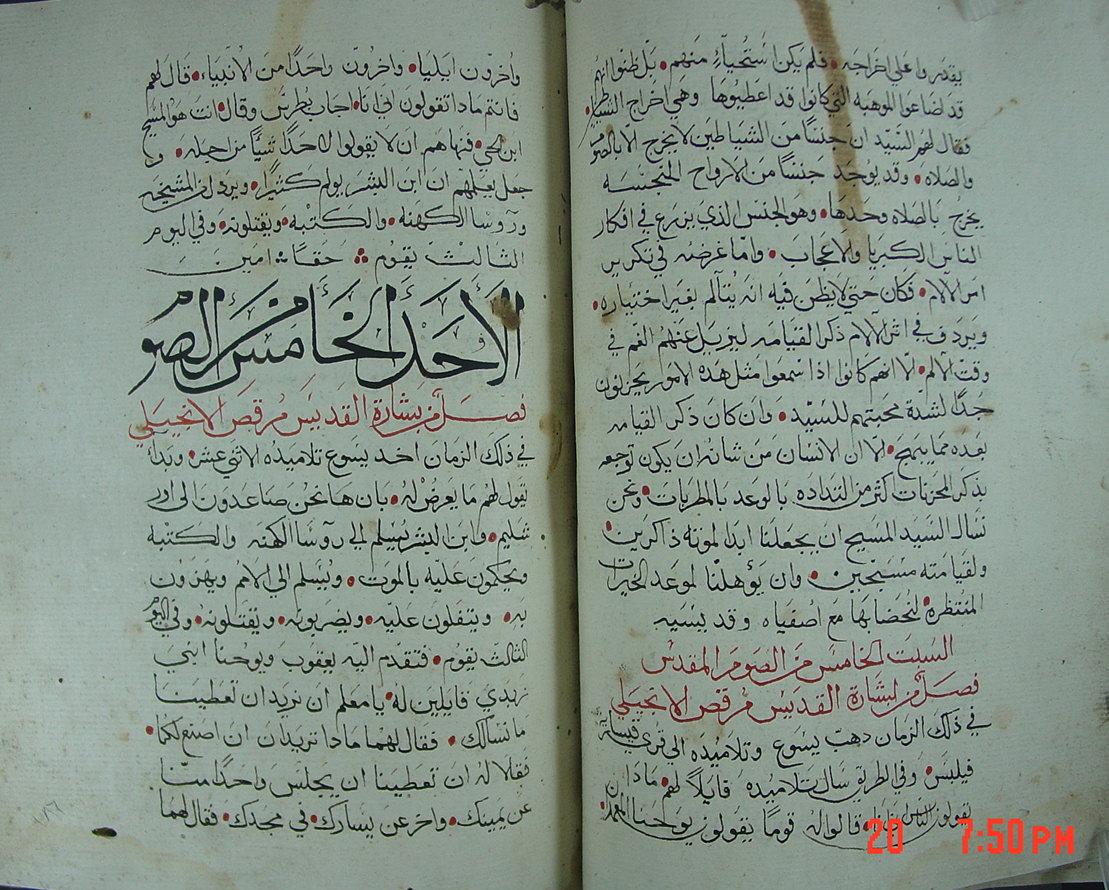 يقدروا على اخراجه • فلم يكن استحياء منهم • بل ظنوا انهم
قد ضاعوا الموهبه التي كانوا قد اعطيوها وهي اخراج الشياطين
فقال لهم السيد ان جنسا من الشياطين لا يخرج الا بالصوم
والصلاه • وقد يوجد جنسا من الارواح النجسه
يخرج بالصلاه وحدها • وهو الجنس الذي يزرع في افكار
الناس الكبريا والاعجاب • واما غرضه في تكرير
امر الالام • فكان حتي لا يظن فيه انه يتالم بغير اختياره •
ويردف في اثر الالام ذكر القيامه ليزيل عنهم الغم في
وقت الالم • الا انهم كانوا اذا سمعوا مثل هذه الامور يحزنون
جدا لشدة محبتهم للسيد • وان كان ذكر القيامه
بعده مما يبهج • الا ان الانسان من شانه ان يكون توجعه
بذكر المحزنات اكثر من التداده بالوعد بالمطربات • ونحن
نسال السيد المسيح ان يجعلنا ابدا لموته ذاكرين •
ولقيامته مسبحين • وان يؤهلنا لموعد الخيرات
المنتظره • لنحضا بها مع اصفياه وقديسيه
السبت الخامس من الصوم المقدس
فصل من بشارة القديس مرقص الانجيلي
في ذلك الزمان دهب يسوع وتلاميذه الي قري قيسارية
فيلبس • وفي الطريق سال تلاميذه قايلا لهم • مادا
يقولون الناس • قالوا له قوما يقولون يوحنا المعمدان
واخرون ايليا • واخرون واحدا من الانبياء • قال لهم
فانتم مادا تقولون اني انا • اجاب بطرس وقال • انت هو المسيح
ابن الحي • فنهاهم ان لا يقولوا لاحدا شيا من جله •
جعل يعلمهم ان ابن البشر يولم كثيرا • ويردل من المشيخه
وروسا الكهنه • والكتبه • ويقتلونه • وفي اليوم
الثالث يقوم حقا امين
الاحد الخامس الصو
فصل من بشارة القديس مرقص الانجيلي
في ذلك الزمان اخد يسوع تلاميذه الاثني عشر • وبدا
يقول لهم ما يعرض له • بان ها نحن صاعدون الي اور
شليم • وابن البشر يسلم الي روسا الكهنه والكتبه
ويحكمون عليه بالموت • ويسلم الي الامم ويهزون
به • ويتفلون عليه • ويضربونه • ويقتلونه • وفي اليوم
الثالث يقوم • فتقدم اليه يعقوب ويوحنا ابني
زبدي قايلين له • يا معلم ان نريد ان تعطينا
ما نسالك • فقال لهما مادا تريدان ان اصنع لكما •
فقالا له ان تعطينا ان يجلس واحدا منا
عن يمينك • واخر عن يسارك • في مجدك • فقال لهما
20 7:50 PM